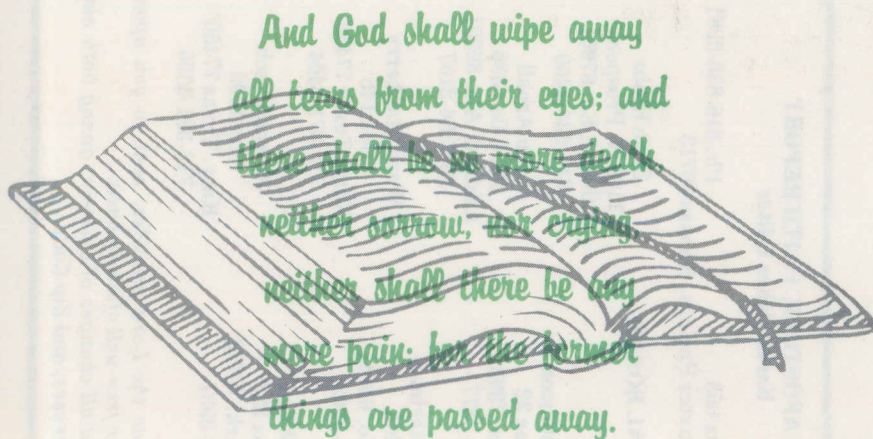 And God shall wipe away
all tears from their eyes; and
there shall be no more death,
neither sorrow, nor crying,
neither shall there be any
more pain: for the former
things are passed away.